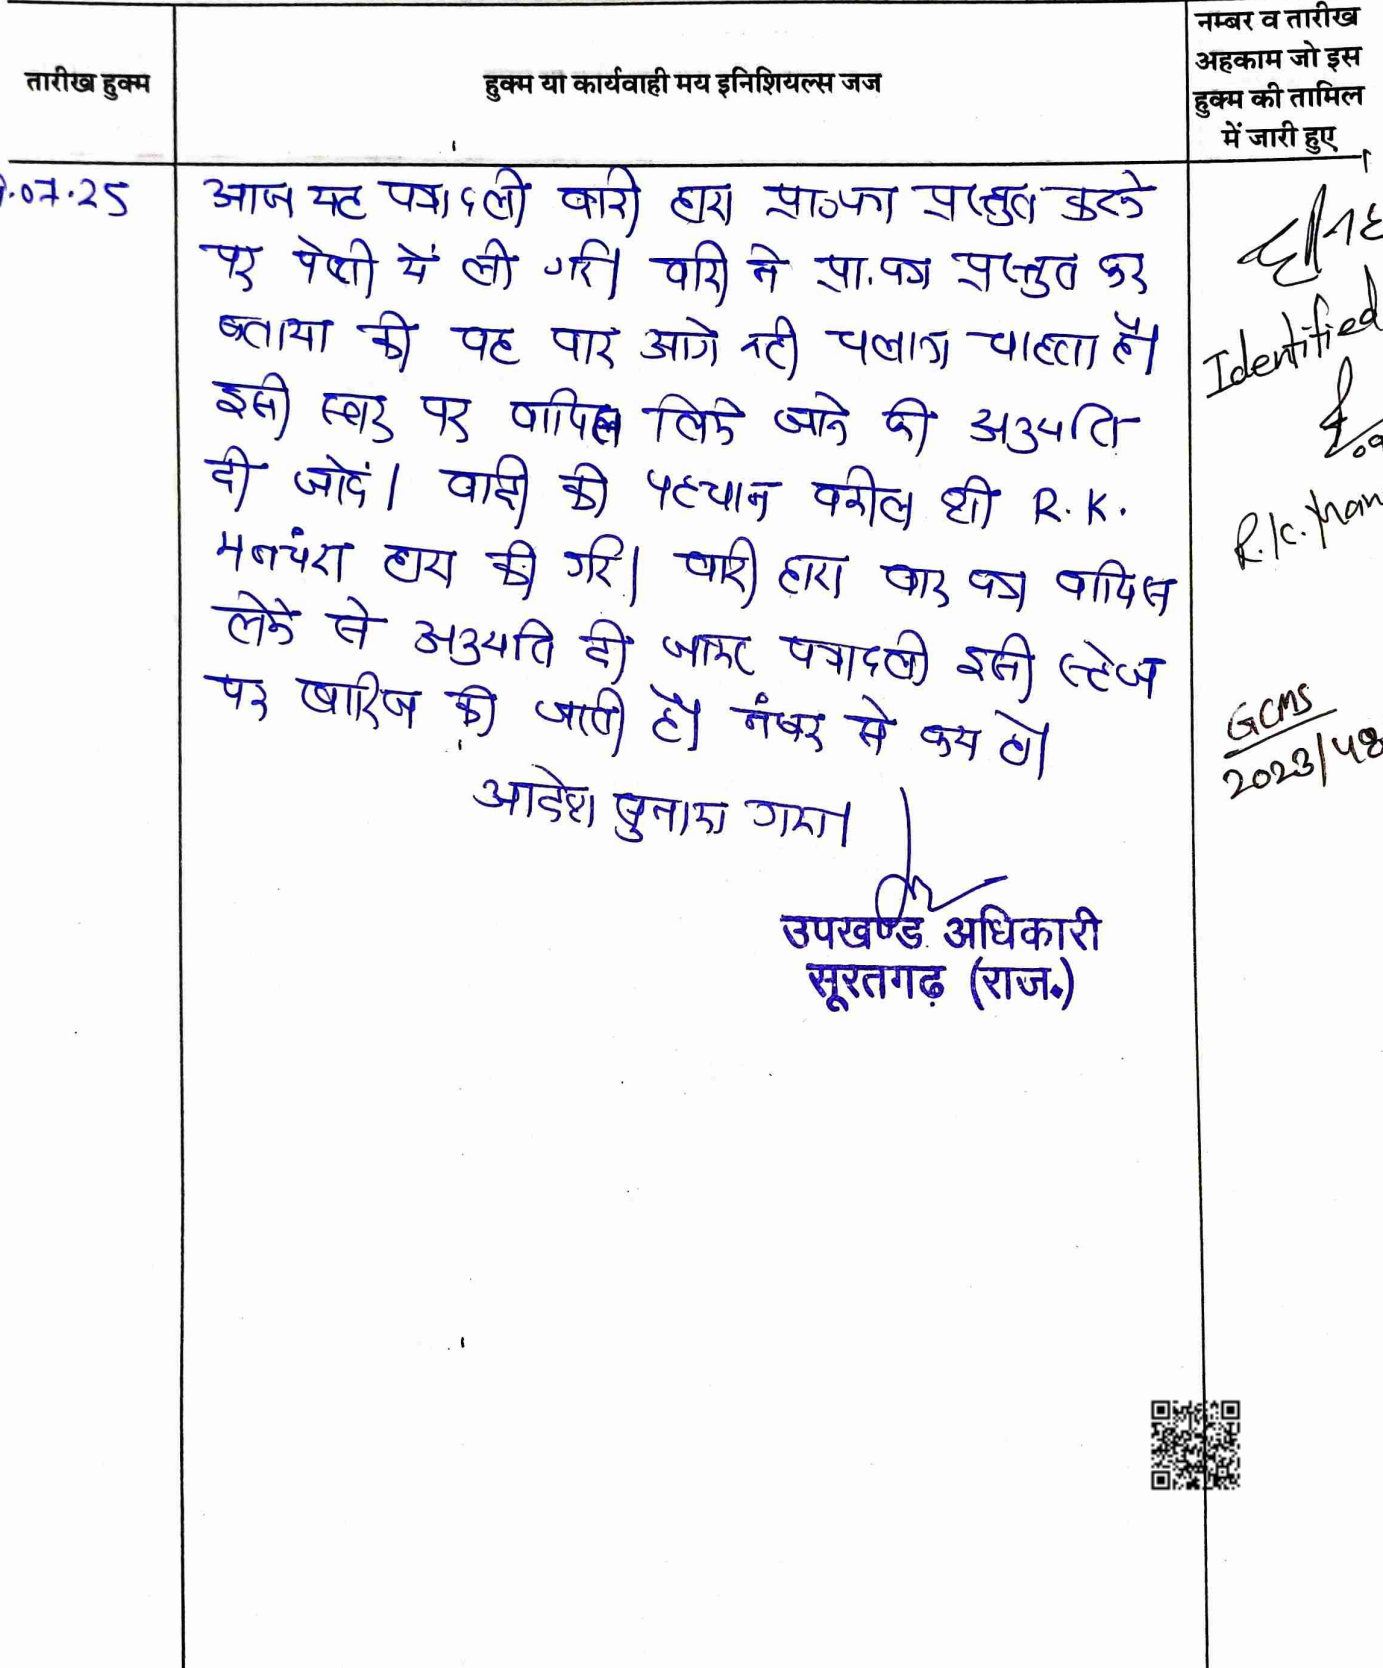 तारीख हुक्म
हुक्म या कार्यवाही मय इनिशियल्स जज
नम्बर व तारीख
अहकाम जो इस
हुक्म की तामिल
में जारी हुए
.07.25
आज यह पत्रावली वादी द्वारा प्रा०पत्र प्रस्तुत करने
पर पेशी में ली गई। वादी ने प्रा.पत्र प्रस्तुत कर
बताया की वह वाद आगे नही चलाना चाहता है।
इसी स्तर पर वापिस लिये जाने की अनुमति
दी जावे। वादी की पहचान वकील श्री R. K.
द्वारा की गई। वादी द्वारा वाद पत्र वापिस
लेने से अनुमति दी जाकर पत्रावली इसी स्टेज
पर खारिज की जाती है। नंबर से कम हो।
आदेश सुनाया गया।
उपखण्ड अधिकारी
सूरतगढ़ (राज.)
Identified
R.K.
GCMS
2023/